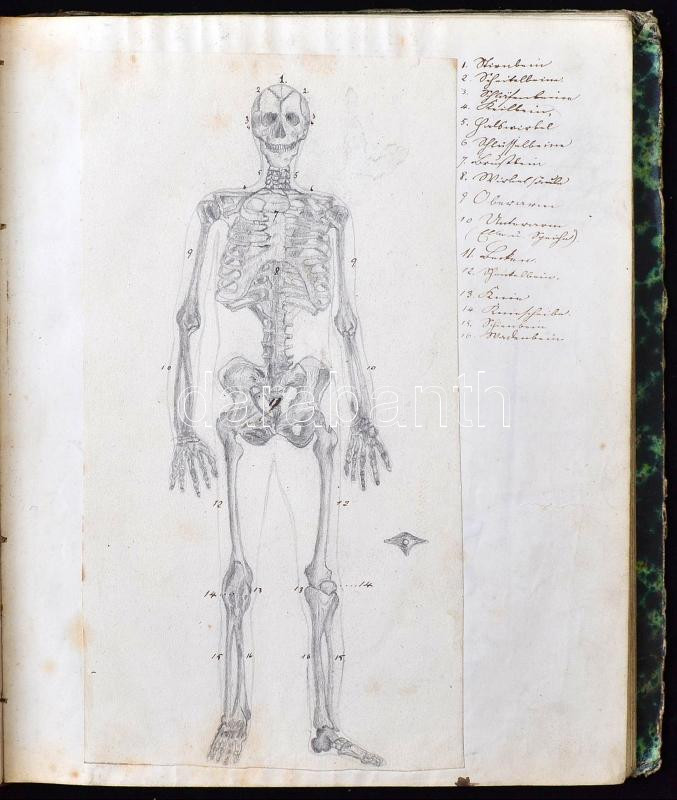 1. Stirnbein
2. Scheitelbeine
3. Schläfenbeine
4. Keilbein,
5. Halswirbel
6 Schlüsselbeine
7. Brustbein
8. Wirbelsäule
9 Oberarm
10 Unterarm
(Elle u. Speiche).
11. Becken.
12. Schenkelbein.
13. Knie
14. Kniescheibe.
15. Schienbein
16. Wadenbein
1
2 2
3 3
4 4
5 5
6 6
7
8
9 9
10 10
11
12 12
14 13 13 14
15 16 16 15
darabanth